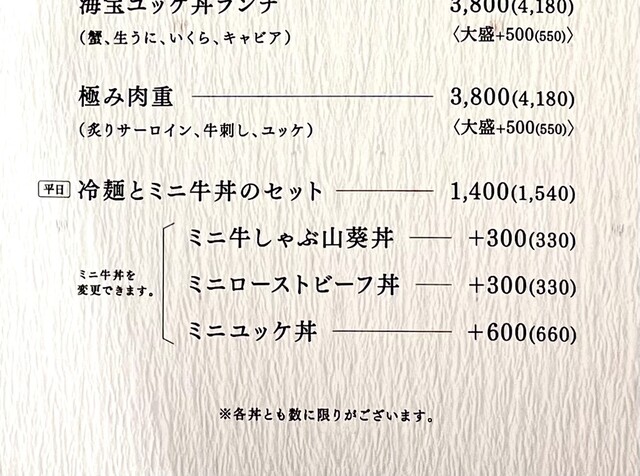 海宝ユッケ丼ランチ 3,800(4,180)
(蟹、生うに、いくら、キャビア) 〈大盛+500(550)〉
極み肉重 3,800(4,180)
(炙りサーロイン、牛刺し、ユッケ) 〈大盛+500(550)〉
平日 冷麺とミニ牛丼のセット 1,400(1,540)
ミニ牛丼を
変更できます。
ミニ牛しゃぶ山葵丼 +300(330)
ミニローストビーフ丼 +300(330)
ミニユッケ丼 +600(660)
※各丼とも数に限りがございます。